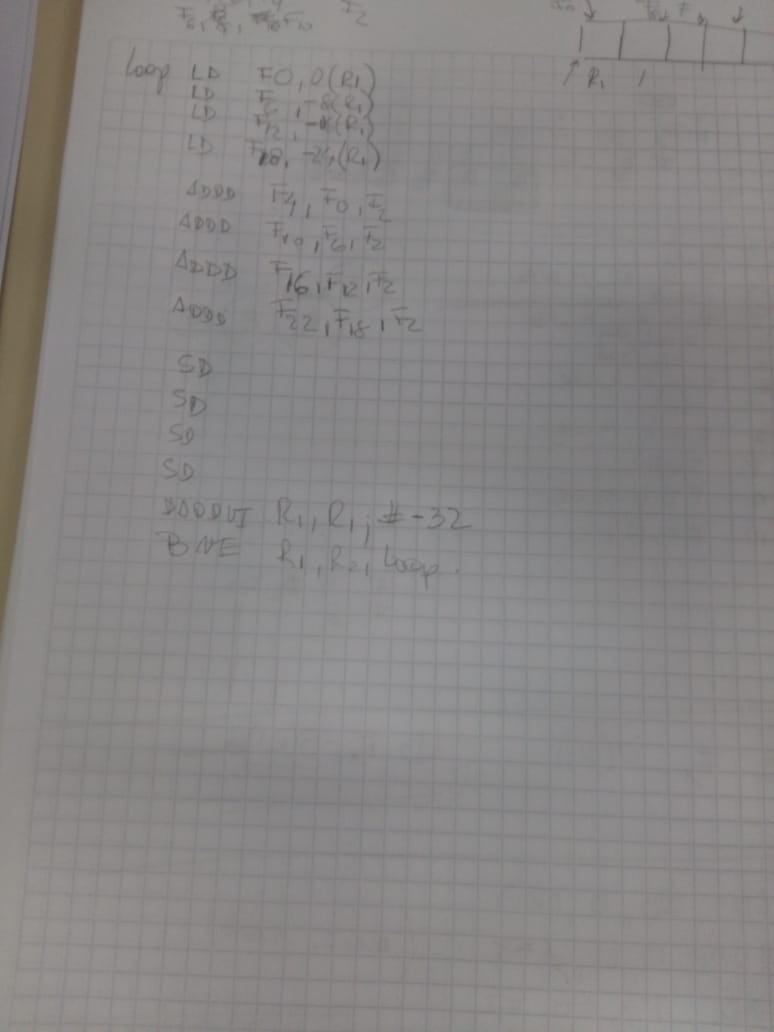 F2
R1
Loop LD F0, 0(R1)
LD -8(R1)
LD F12, (R1)
LD -24(R1)
ADDD F4, F0, F2
ADDD F10, F6, F2
ADDD F16, F12, F2
ADDD F22, F18, F2
SD
SD
SD
SD
DADDUI R1, R1, #-32
BNE R1, R2, Loop.